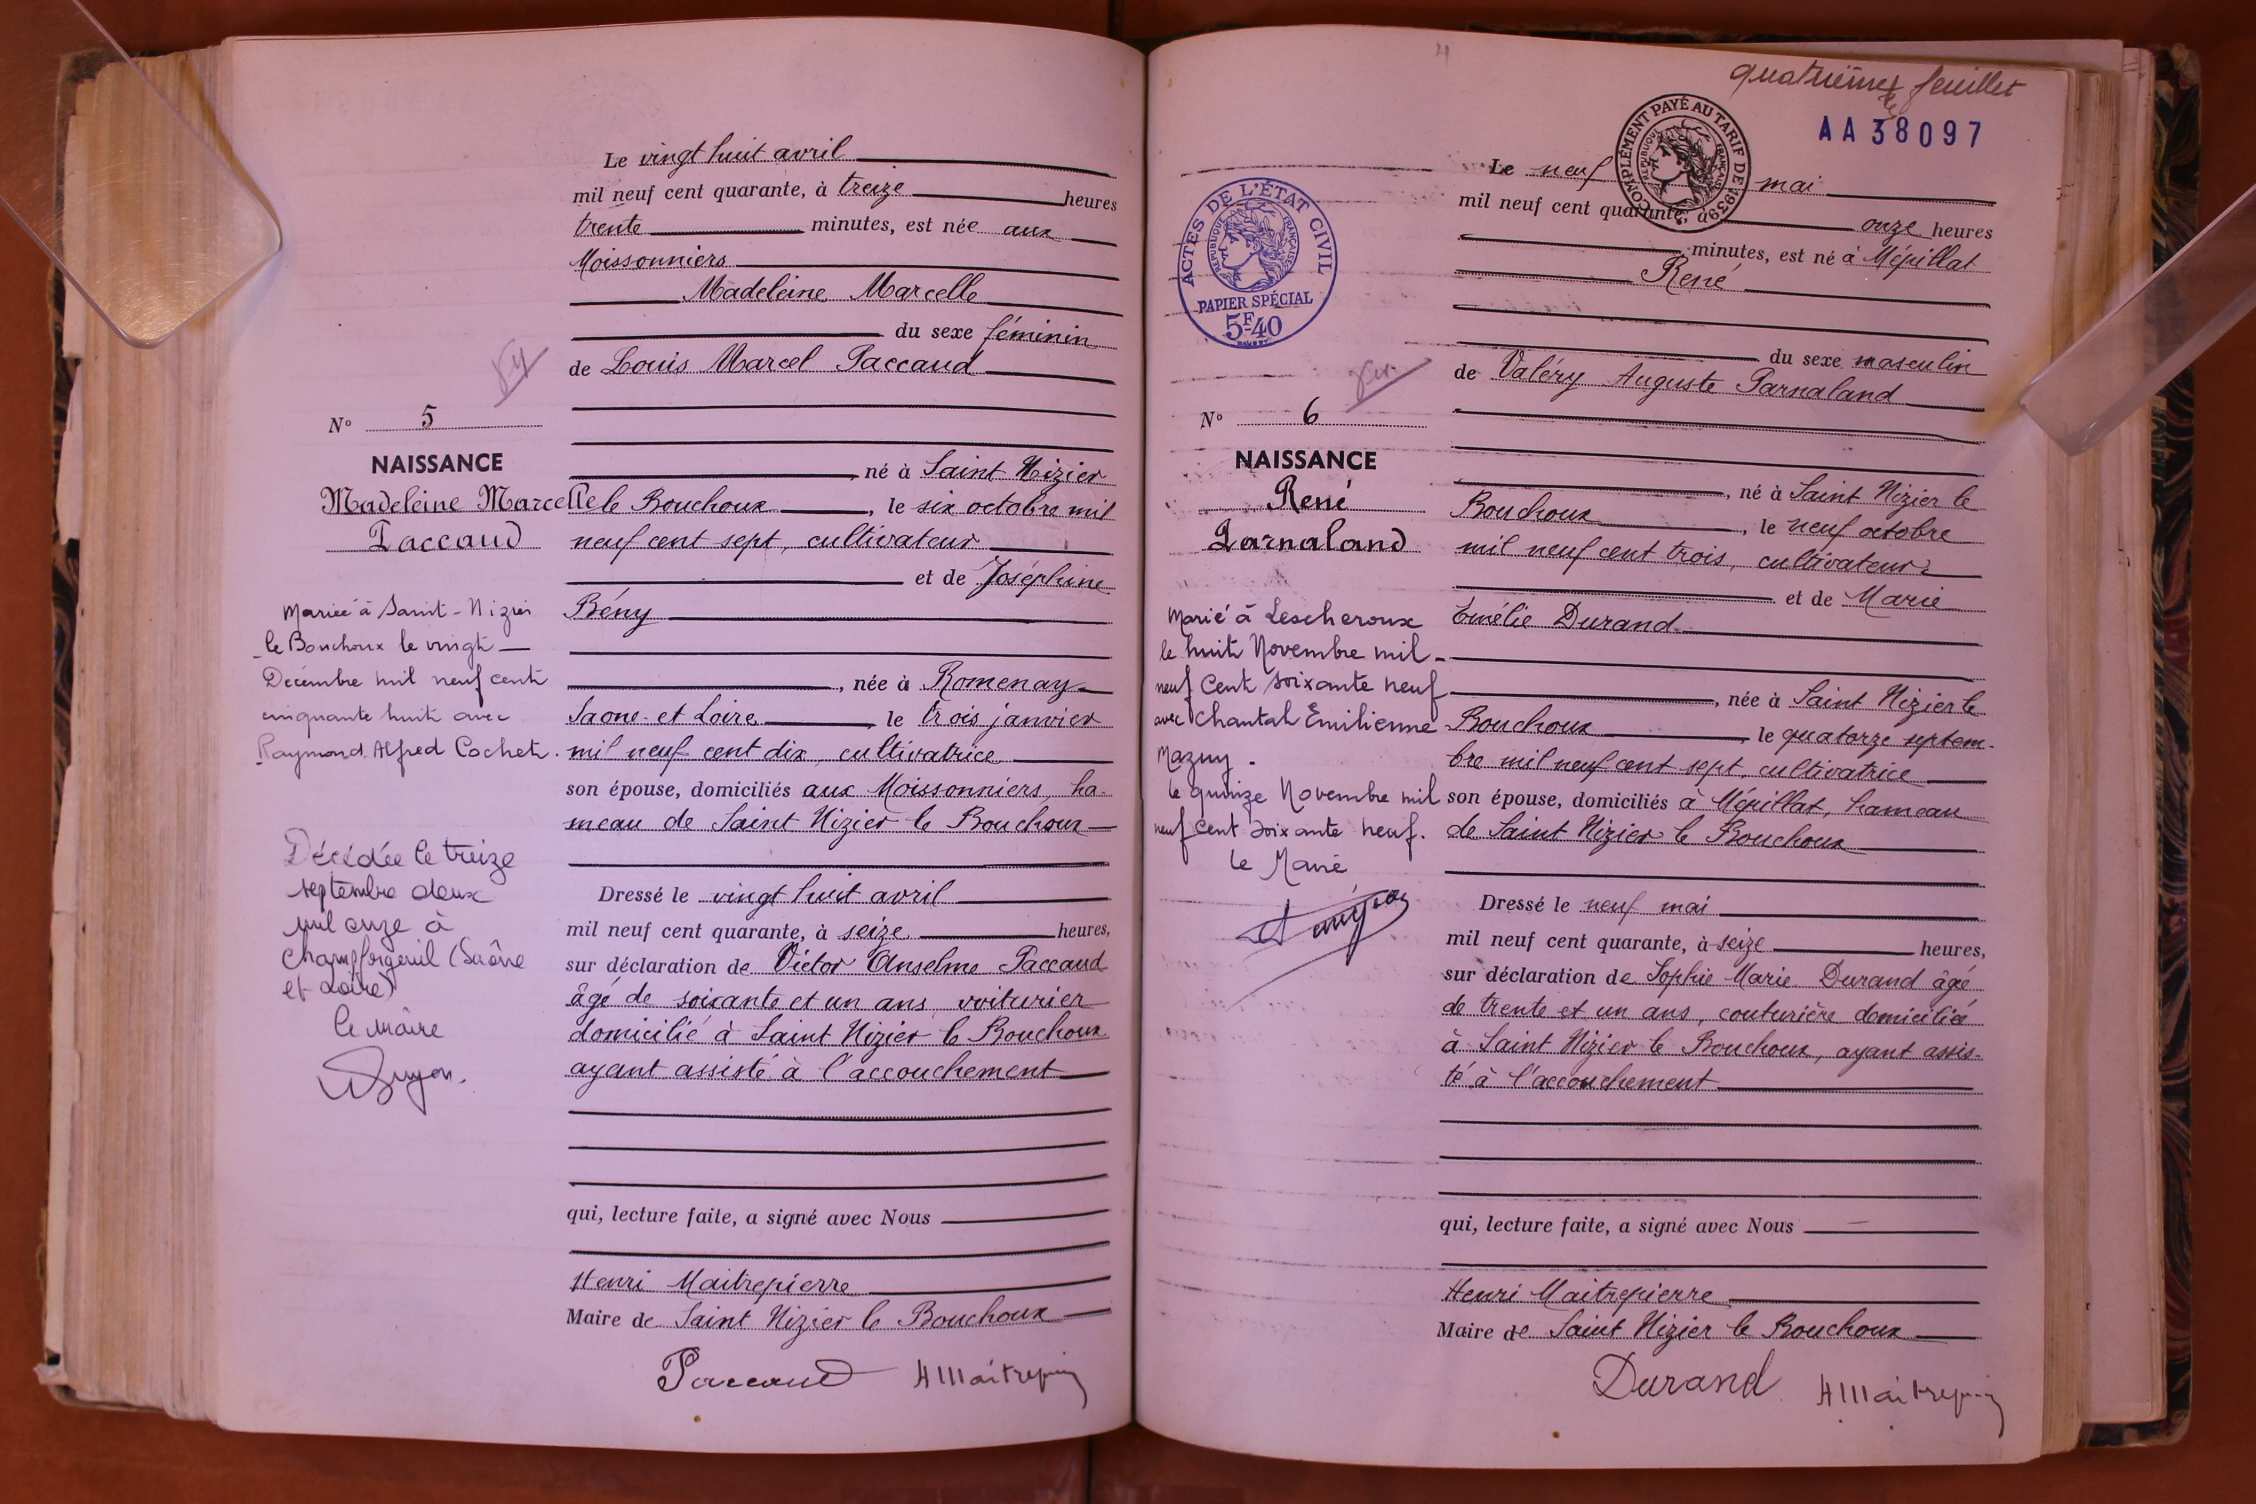 Le vingt huit avril
mil neuf cent quarante, à treize heures
trente minutes, est née aux
Moissonniers
Madeleine Marcelle
du sexe féminin
de Louis Marcel Paccaud
N° 5
NAISSANCE
Madeleine Marcelle
Paccaud
né à Saint Nizier
le Bouchoux, le six octobre mil
neuf cent sept, cultivateur
et de Joséphine
Bény
née à Romenay
Saone-et-Loire, le trois janvier
mil neuf cent dix, cultivatrice
son épouse, domiciliés aux Moissonniers, ha-
meau de Saint Nizier le Bouchoux
Dressé le vingt huit avril
mil neuf cent quarante, à seize heures,
sur déclaration de Victor Anselme Paccaud
âgé de soixante et un ans, voiturier
domicilié à Saint Nizier le Bouchoux
ayant assisté à l'accouchement
qui, lecture faite, a signé avec Nous
Henri Maitrepierre
Maire de Saint Nizier le Bouchoux
Paccaud HMaitrepierre
Mariée à Saint-Nizier
le Bouchoux le vingt
Décembre mil neuf cent
cinquante huit avec
Raymond Alfred Cochet.
Décédée le treize
septembre deux
mil onze à
Champforgeuil (Saône
et Loire)
le Maire
quatrième feuillet
AA38097
COMPLÉMENT PAYÉ AU TARIF DE 1939
RÉPUBLIQUE FRANÇAISE
ACTES DE L'ÉTAT CIVIL
RÉPUBLIQUE FRANÇAISE
PAPIER SPÉCIAL
5F40
Le neuf mai
mil neuf cent quarante, à onze heures
minutes, est né à Mépillat
René
du sexe masculin
de Valéry Auguste Parnaland
N° 6
NAISSANCE
René
Parnaland
, né à Saint Nizier le
Bouchoux, le neuf octobre
mil neuf cent trois, cultivateur
et de Marie
Emélie Durand
, née à Saint Nizier le
Bouchoux, le quatorze septem-
bre mil neuf cent sept, cultivatrice
son épouse, domiciliés à Mépillat, hameau
de Saint Nizier le Bouchoux
Dressé le neuf mai
mil neuf cent quarante, à seize heures,
sur déclaration de Sophie Marie Durand âgé
de trente et un ans, couturière domiciliée
à Saint Nizier le Bouchoux, ayant assis-
té à l'accouchement
qui, lecture faite, a signé avec Nous
Henri Maitrepierre
Maire de Saint Nizier le Bouchoux
Durand HMaitrepierre
Marié à Lescheroux
le huit Novembre mil
neuf Cent soixante neuf
avec Chantal Emilienne
Mazuy.
le quinze Novembre mil
neuf cent soixante neuf.
le Maire